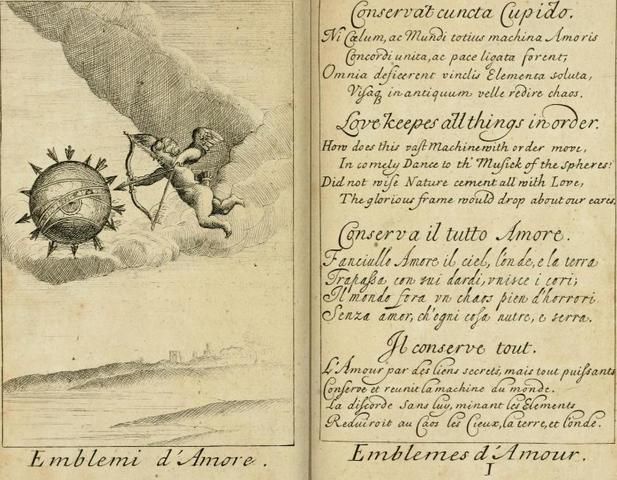 Emblemi d'Amore.
Conservat cuncta Cupido.
Ni Cœlum, ac Mundi totius machina Amoris
Concordi unita, ac pace ligata forent;
Omnia deficerent vinclis Elementa soluta,
Visaq in antiquum velle redire chaos.
Love keepes all things in order.
How does this vast Machine with order move,
In comely Dance to th' Musick of the Spheres!
Did not wise Nature cement all with Love,
The glorious frame would drop about our eares.
Conserva il tutto Amore.
Fanciullo Amore il ciel, l'onde, e la terra
Trapassa con sui dardi, vnisce i cori;
Il mondo fora vn chaos pien d'horrori
Senza amor, ch'egni cosa nutre, e serra.
Il conserve tout.
L'Amour par des liens secrets, mais tout puissants
Conserve et reunit la machine du monde.
La discorde sans luy, minant les Elements
Reduiroit au Caos les Cieux, la terre, et l'onde.
Emblemes d'Amour.
I